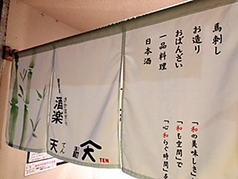 馬刺し
お造り
おばんざい
一品料理
日本酒
「和の美味しさ」を
「和む空間」で
「心和らぐ時間」を
酒楽
天
TEN